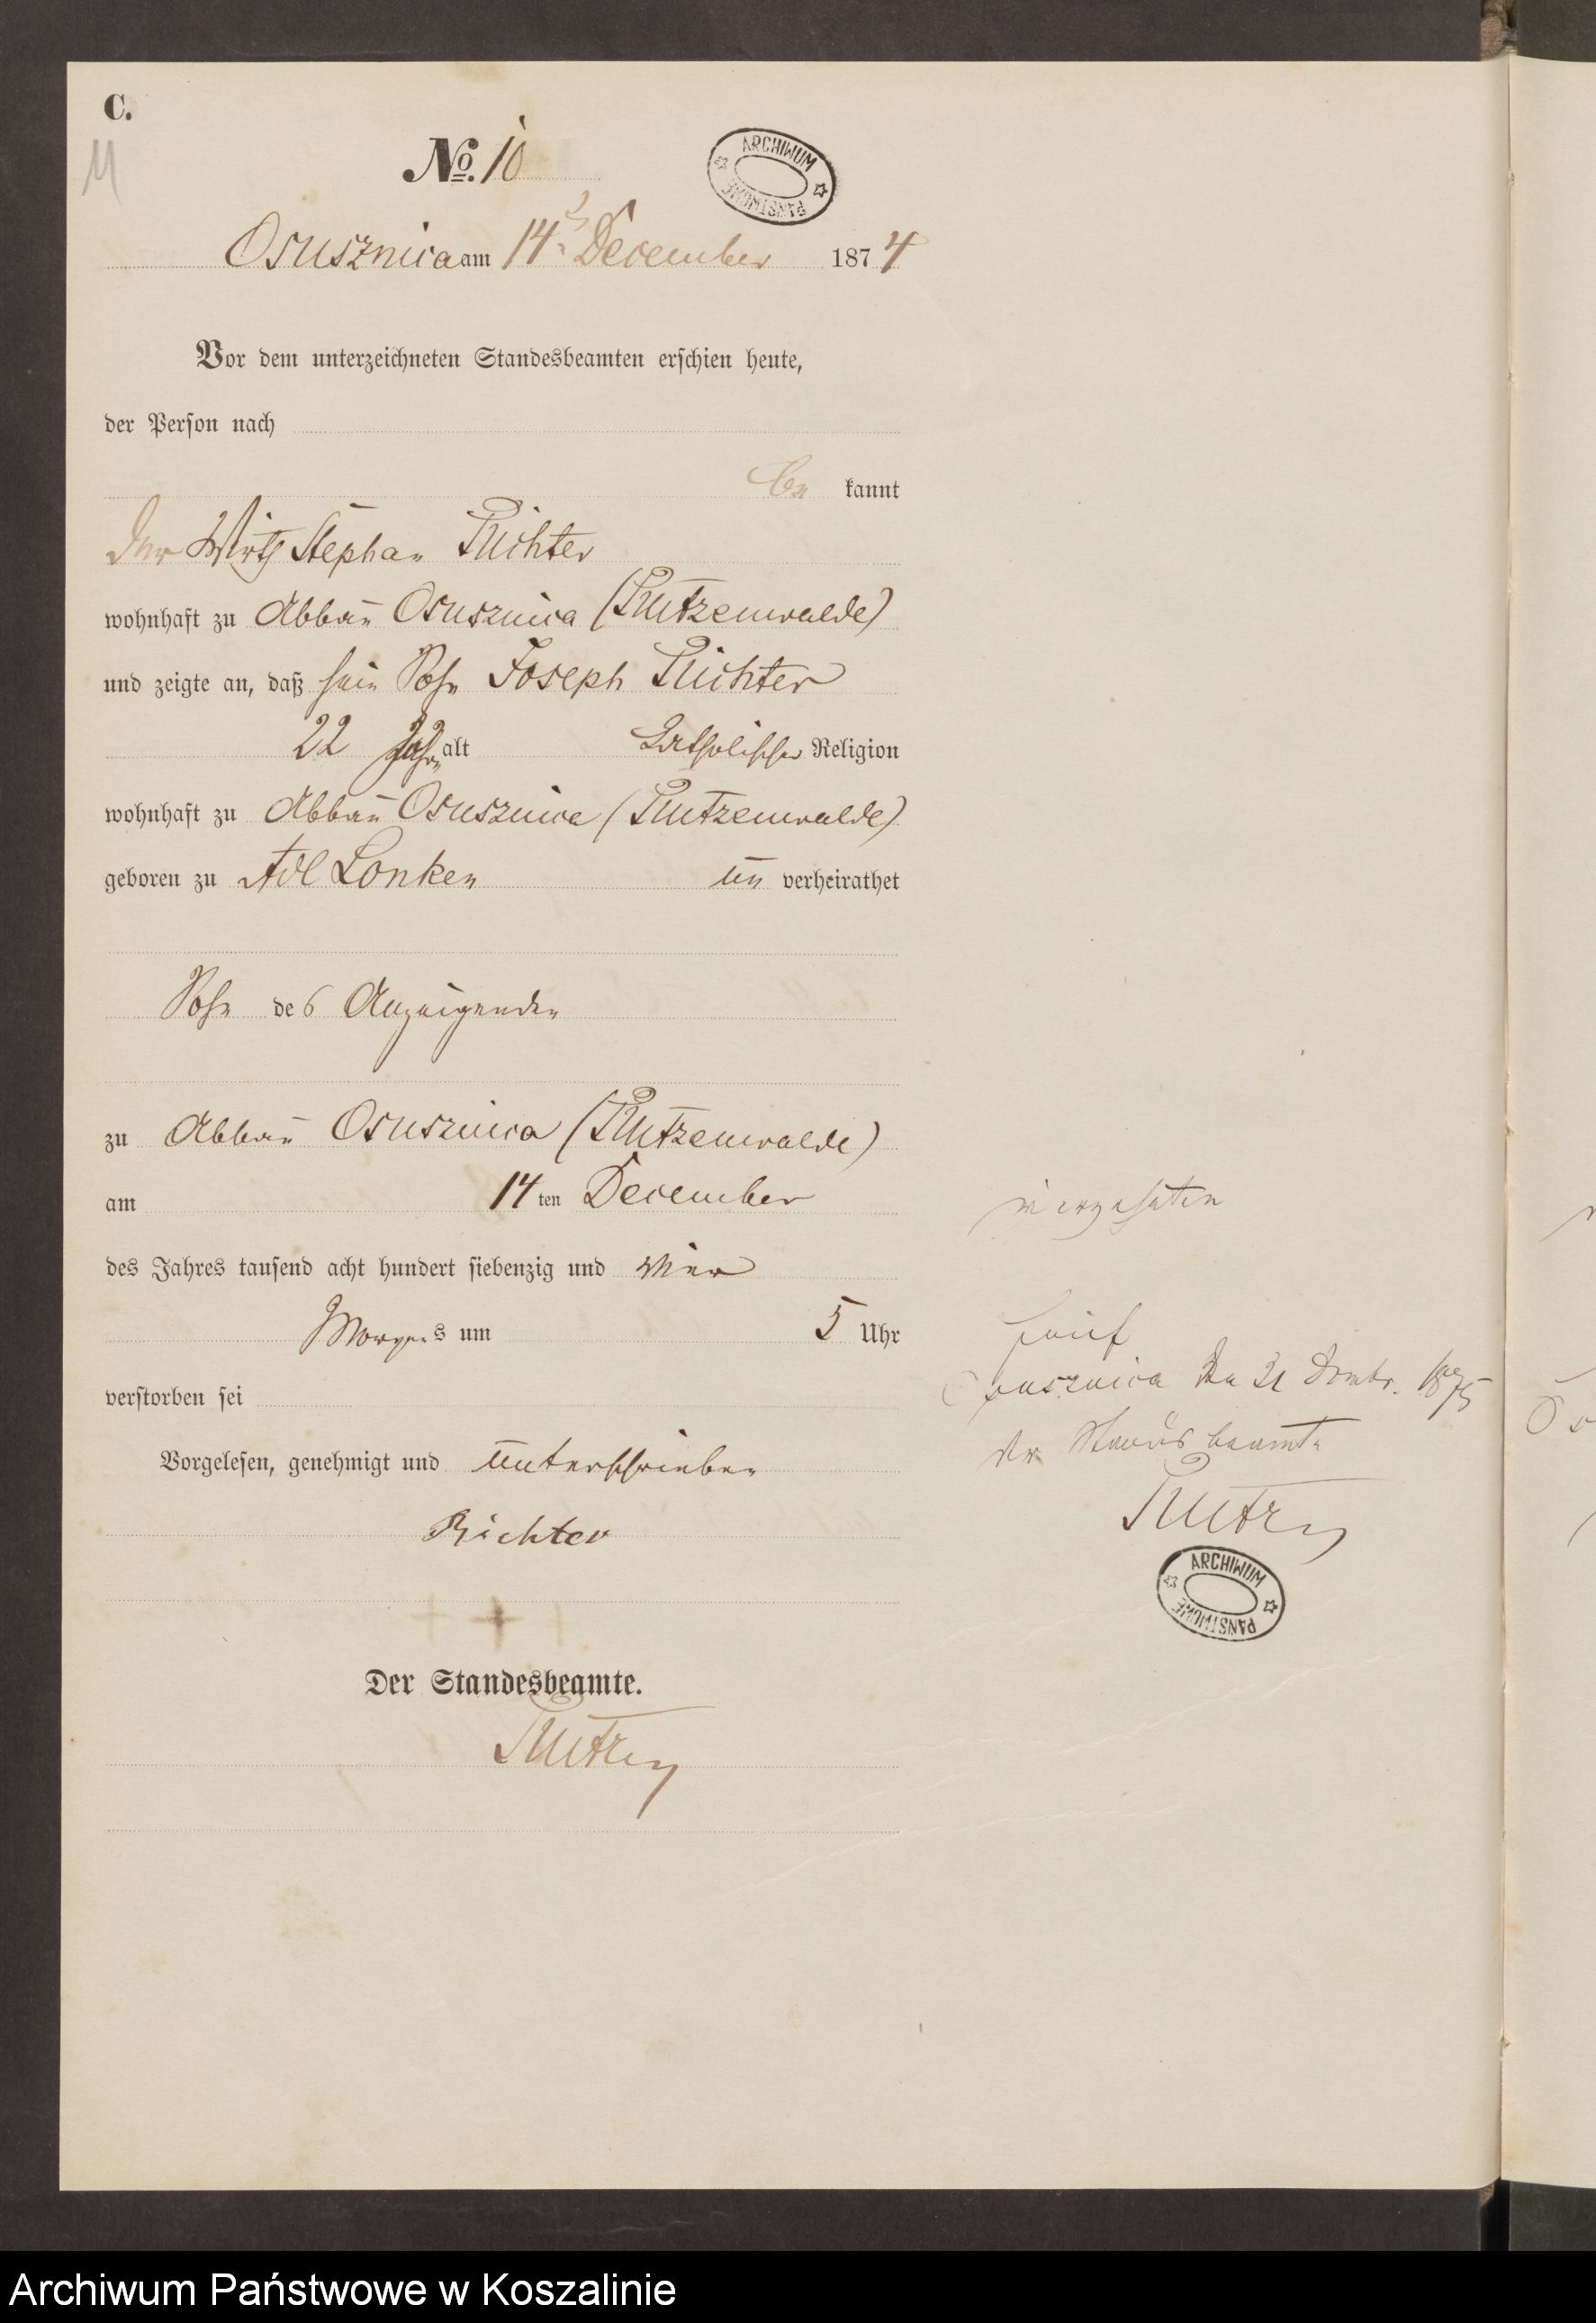 C.
11
No. 10
ARCHIWUM PAŃSTWOWE
Osusznica am 14 December 1874
Vor dem unterzeichneten Standesbeamten erschien heute,
der Person nach
be kannt
der Wirth Stephan Richter
wohnhaft zu Abbau Osusznica (Rutzenwalde)
und zeigte an, daß sein Sohn Joseph Richter
22 Jahr alt katholischer Religion
wohnhaft zu Abbau Osusznica (Rutzenwalde)
geboren zu Adl Lonken un verheirathet
Sohn des Anzeigenden
zu Abbau Osusznica (Rutzenwalde)
am 14ten December
des Jahres tausend acht hundert siebenzig und vier
Morgens um 5 Uhr
verstorben sei
Vorgelesen, genehmigt und unterschrieben
Richter
+ + +
Der Standesbeamte.
vierzehnten
fünf
Osusznica den 31 1875
der Standesbeamte
ARCHIWUM PAŃSTWOWE
Archiwum Państwowe w Koszalinie